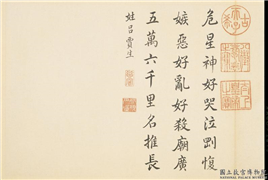 危星神好哭泣剛愎
嫉惡好亂好殺廟廣
五萬六千里名推長
姓呂賈生
國立故宮博物院
NATIONAL PALACE MUSEUM